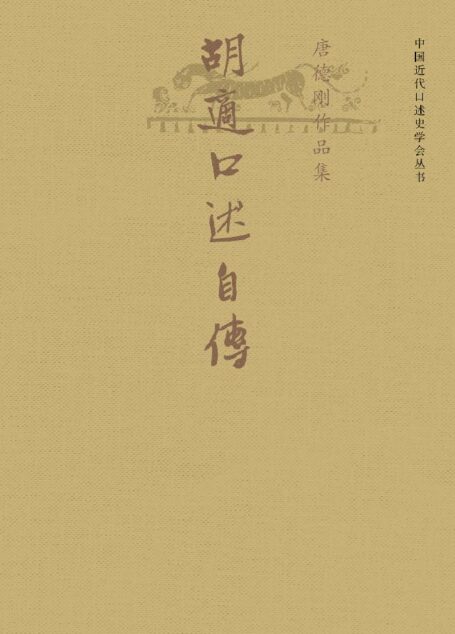 中国近代口述史学会丛书
唐德刚作品集
胡適口述自傳